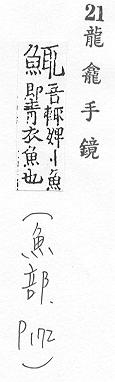 21 龍龕手鏡
鮿
音輙婢小魚
即青衣魚也
(魚部, P172)